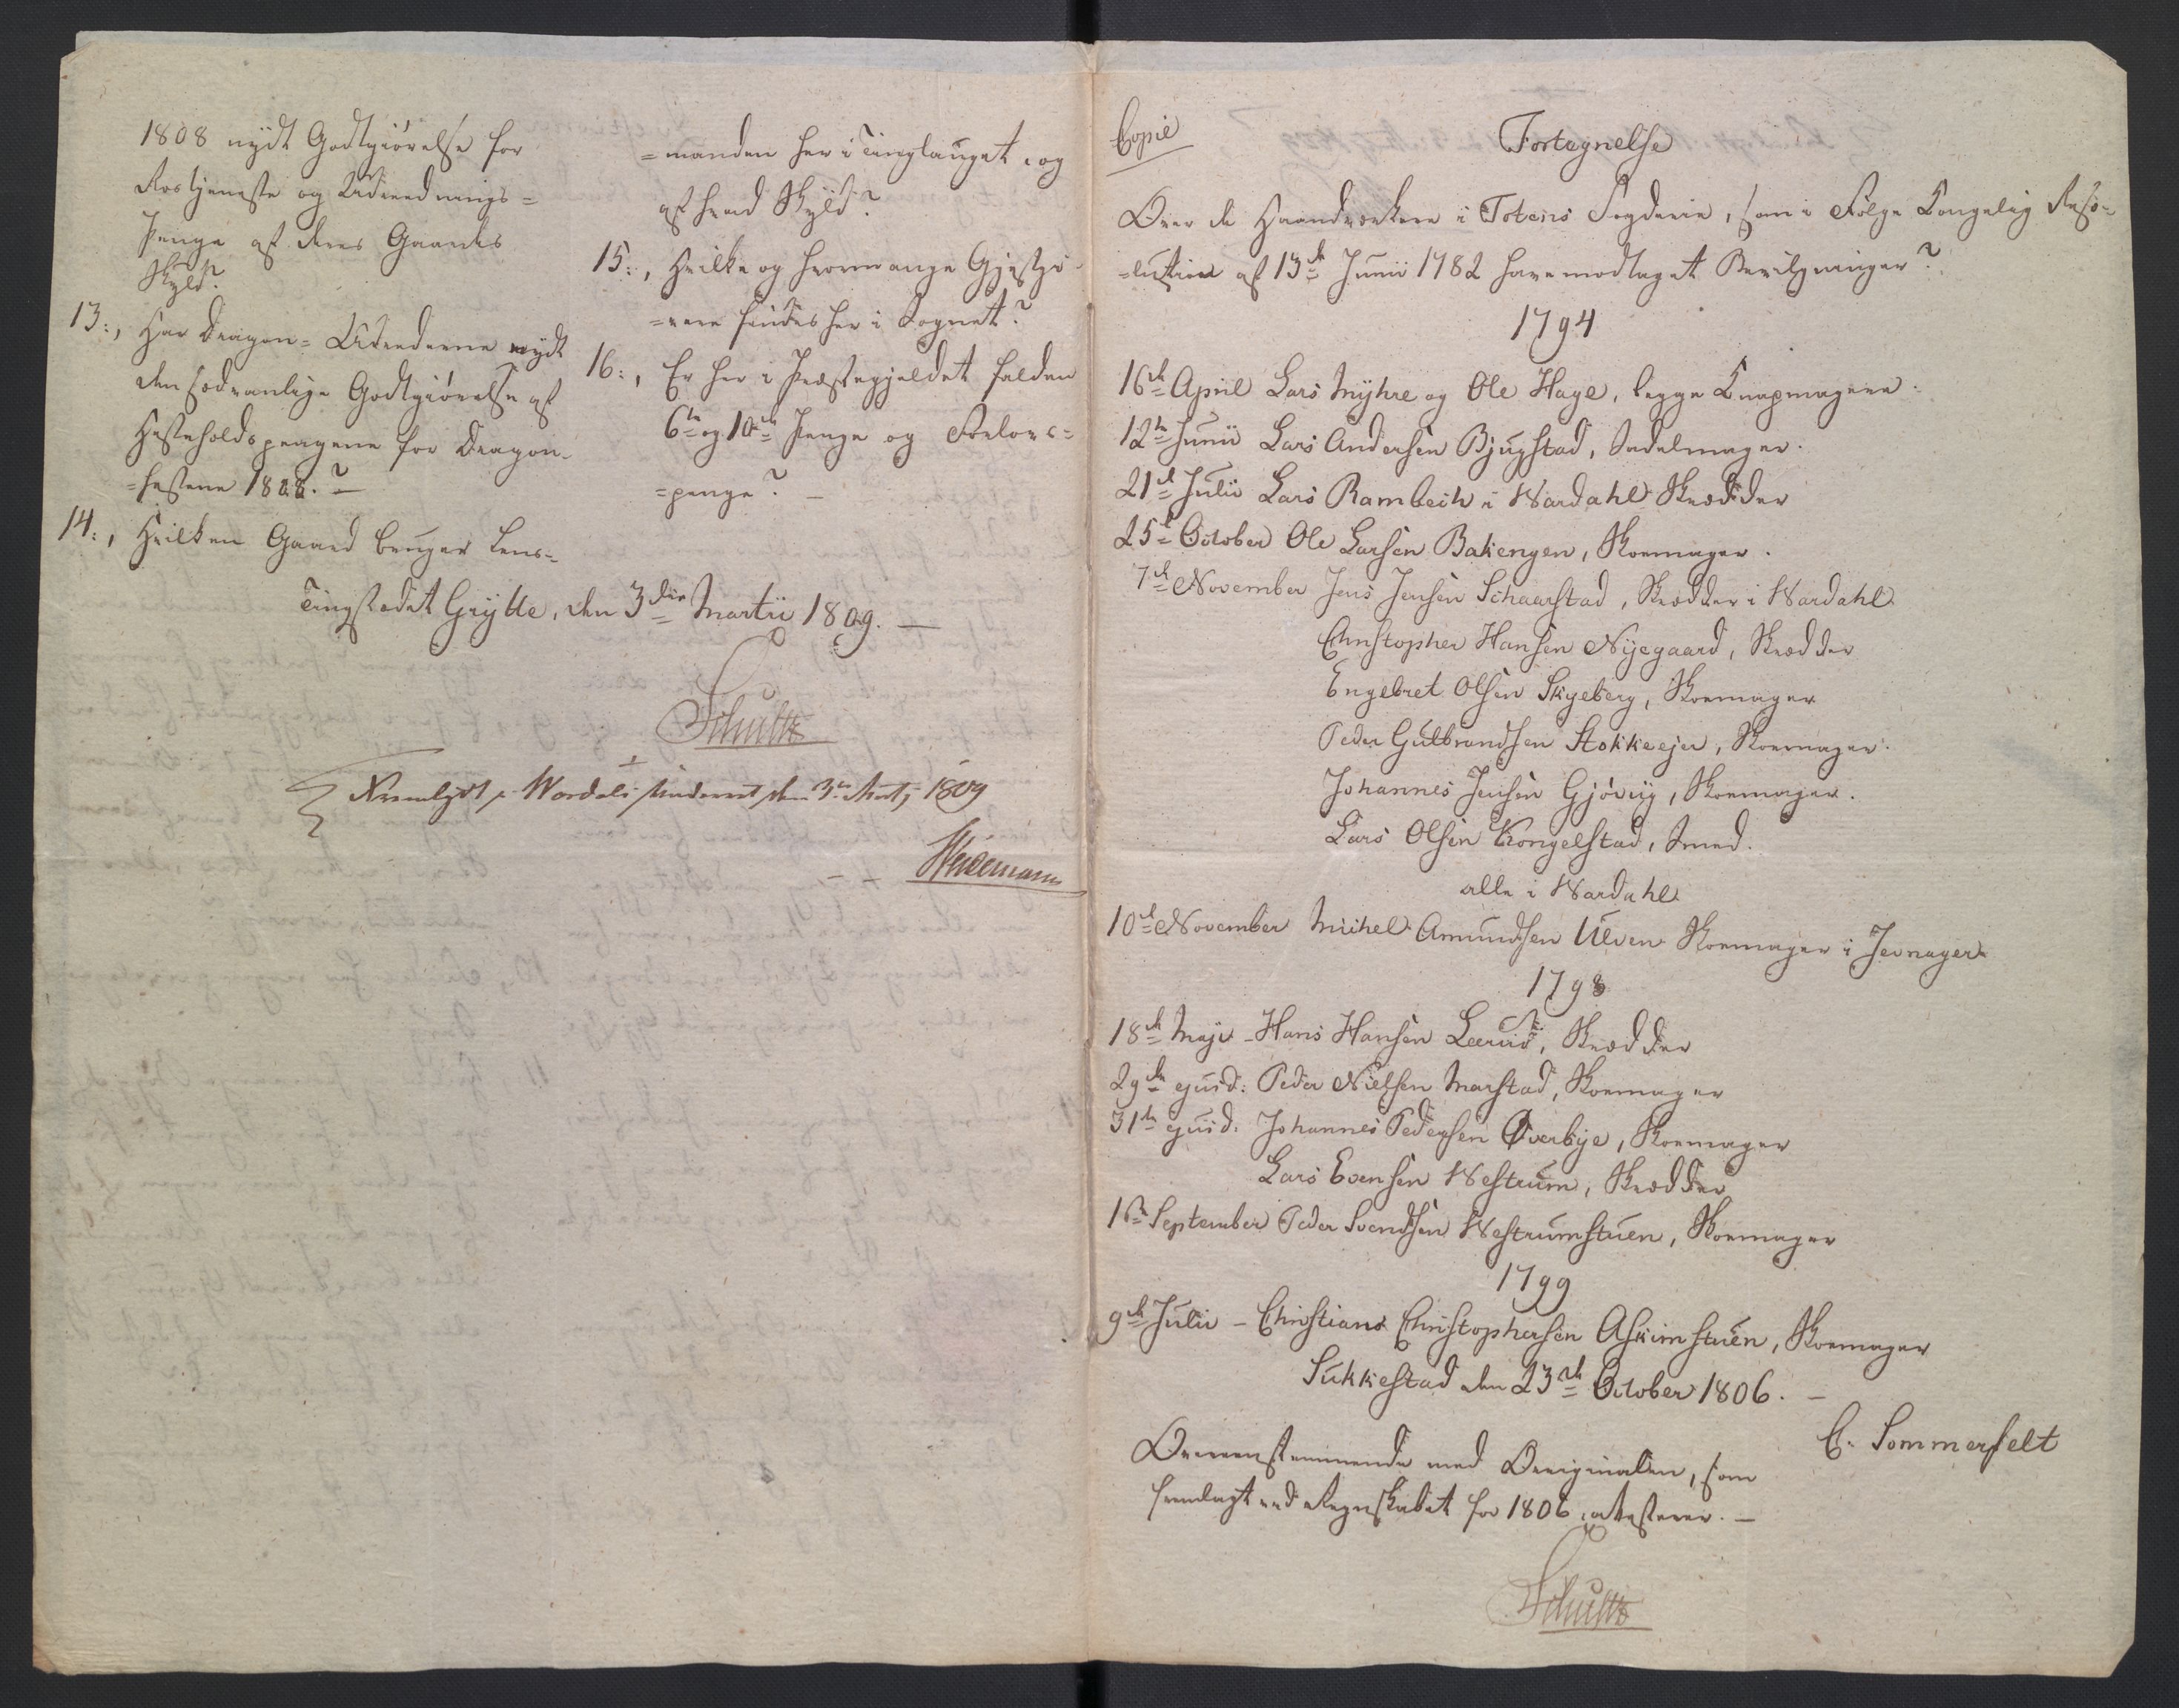 1808 nydt Godtgiørelse for
Rostjeneste og Udrednings=
Penge af deres Gaardes
Skyld?
13:, Har Dragon= Udrederne nydt
den sædvanlige Godtgiørelse af
Hesteholdspengene for Dragon-
=hestene 1808. ? —
14:, Hvilken Gaard bruger Lens-
=manden her i Tinglauget, og
af hvad Skyld?
15:, Hvilke og hvormange Gjestgi-
=vere findes her i Sognet?
16:, Er her i Præstegjeldet falden
6te og 10de Penge og Forlovs=
=penge? —
Tingstædet Grytte, den 3die Martii 1809. —
Schultz
Fremlagt i Wardals den 3de Marti 1809
Weidemann
Copie
Fortegnelse
Over de Haandværkere i Totens Fogderie, som i Følge Kongelig Reso=
=lution af 13de Junii 1782 have modtaget Bevilgninger?
1794
16de April Lars Myhre og Ole Hage, begge Knapmagere.
12te Junii Lars Andersen Bjugstad, Sadelmager.
21de Julii Lars Rambech i Wardahl Skrædder
25de October Ole Larsen Bakengen, Skoemager.
7de November Jens Jensen Schaarstad, Skrædder i Wardahl
Christopher Hansen Nyegaard, Skrædder
Engebret Olsen Skyeberg, Skoemager
Peder Gulbrandsen Stokkeejer, Skoemager.
Johannes Jensen Gjøvig, Skoemager.
Lars Olsen Kongelstad, Smed.
alle i Wardahl
10de November Michel Amundsen Ulven Skoemager i Jevnager
1798
18de Maji - Hans Hansen Leerud, Skrædder
29de ejusd: Peder Nielsen Marstad, Skoemager
31te ejusd: Johannes Pedersen Øverbye, Skoemager
Lars Evensen Westrum, Skrædder
16de September Peder Svendsen Westrumstuen, Skoemager
1799
9de Julii - Christian Christophersen Askimstuen, Skoemager
Sukkestad den 23de October 1806. —
C. Sommerfelt
Overeenstemmende med Originalen, som
fremlagt ved Regnskabet for 1806, attesterer. —
Schultz